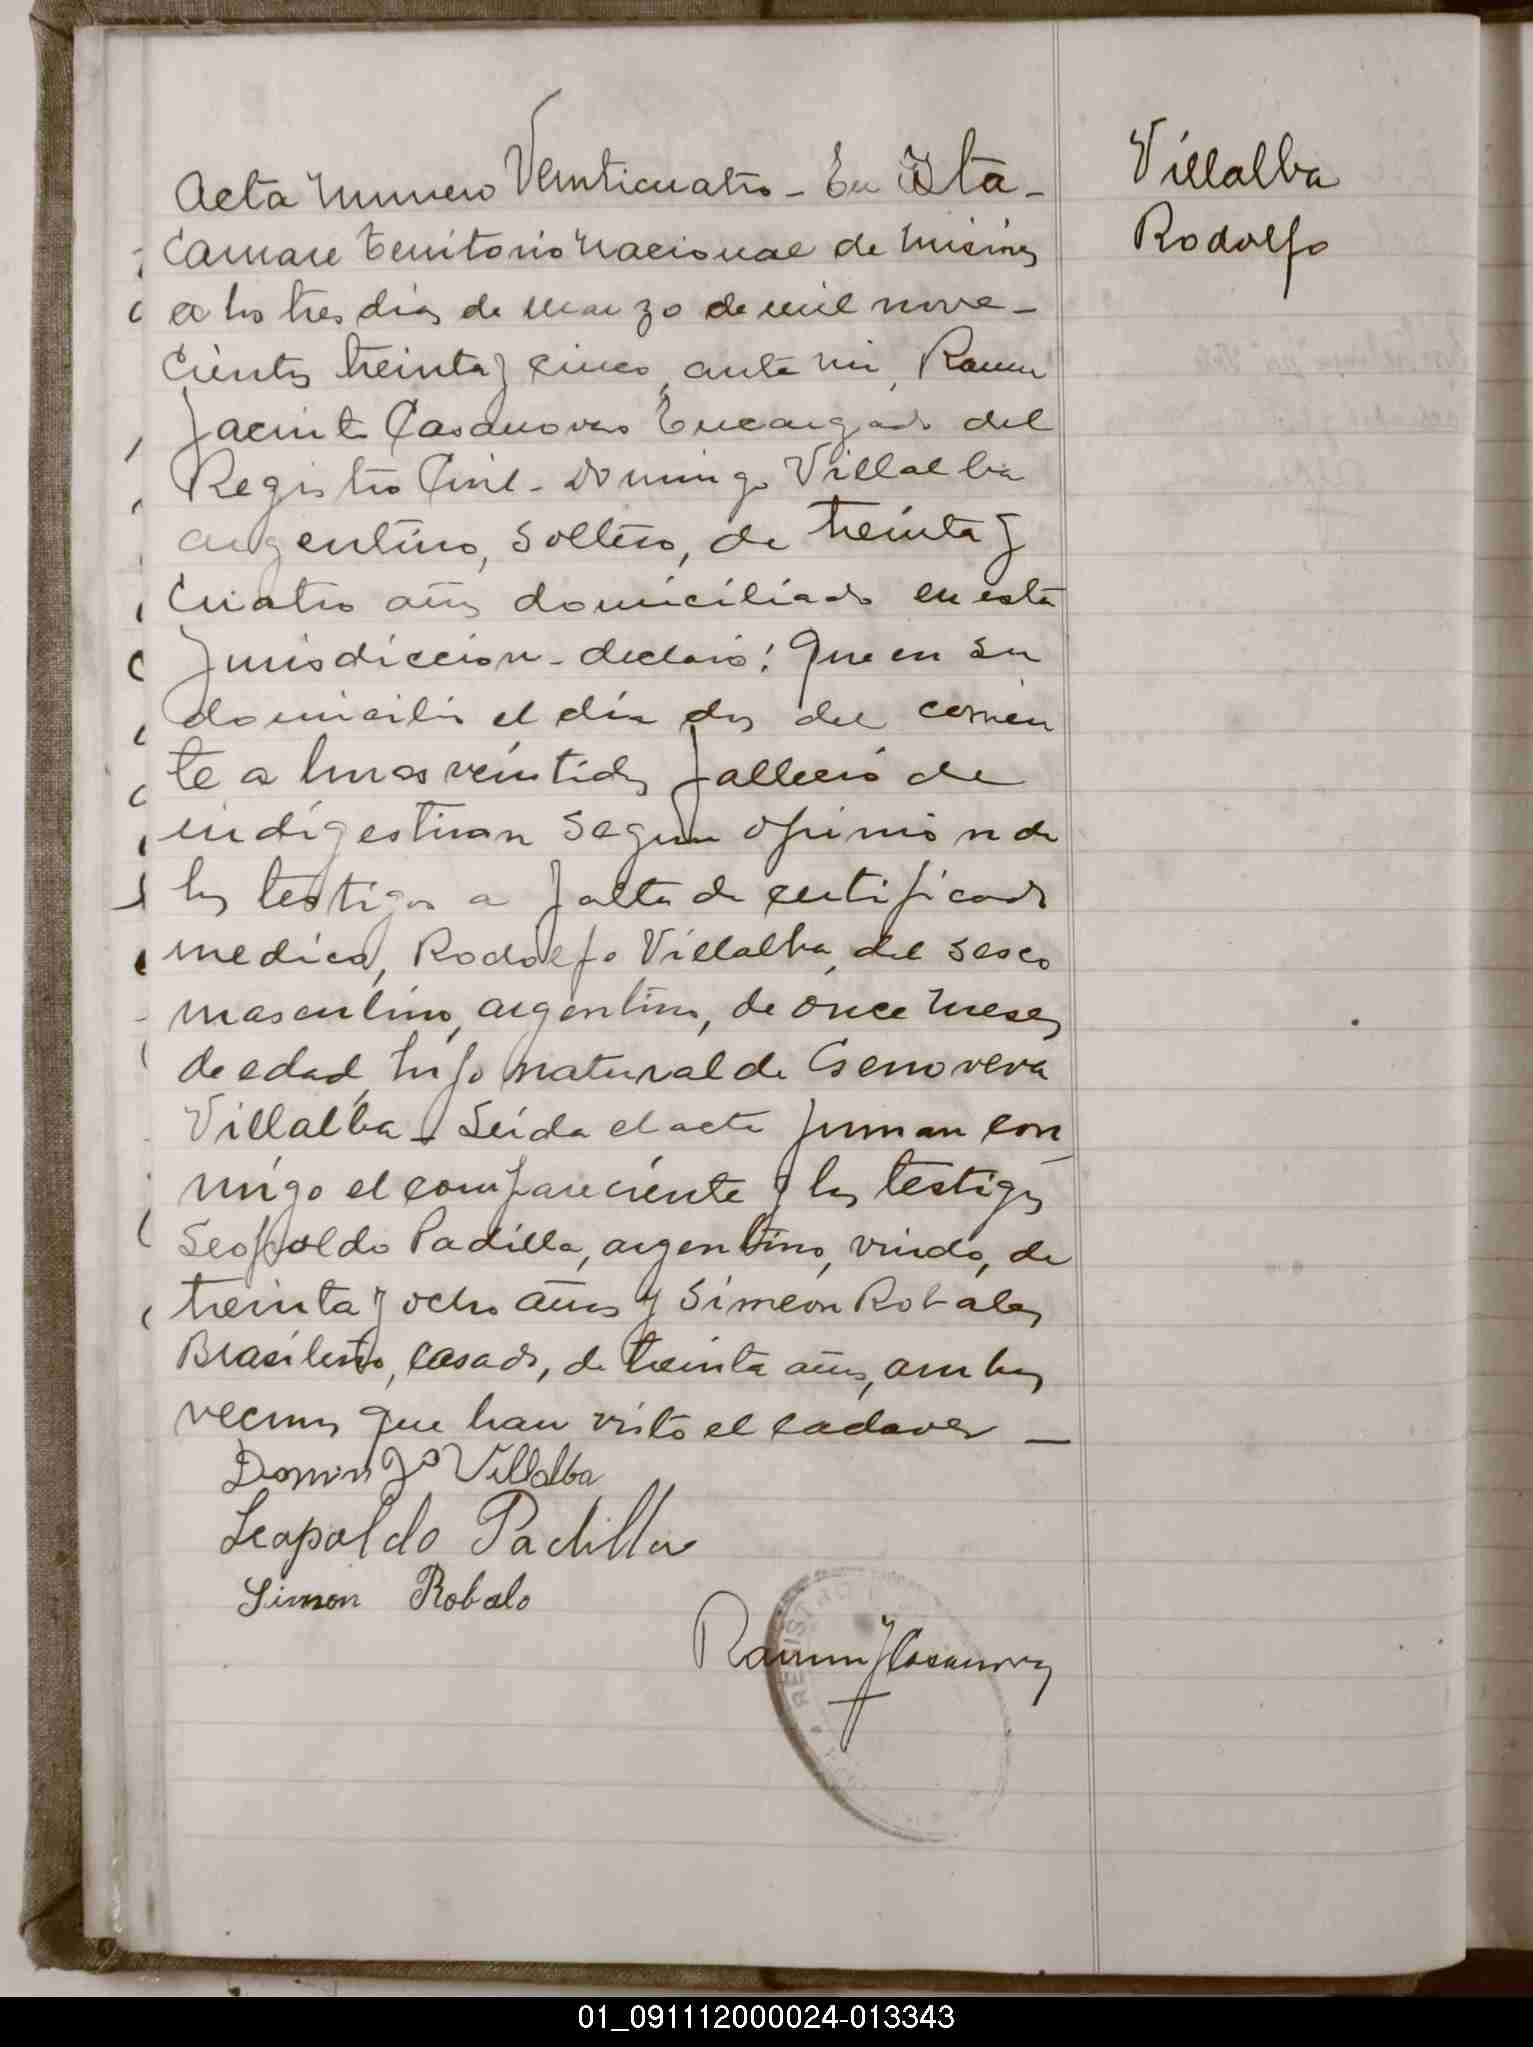 Acta numero Veinticuatro - En Ita-
caruare territorio nacional de misiones
a los tres dias de marzo de mil nove-
cientos treinta y cinco, ante mi, Ramon
Jacinto Casanovas Encargado del
Registro Civil - Domingo Villalba
argentino, soltero, de treinta y
cuatro años domiciliado en esta
Jurisdiccion - declaró: Que en su
domicilio el día dos del corrien
te a horas veintidos falleció de
indigestion segun opinion de
los testigos a falta de certificado
medico, Rodolfo Villalba, del sexo
masculino, argentino, de once meses
de edad, hijo natural de Genoveva
Villalba - Leida el acta firman con
migo el compareciente y los testigos
Leopoldo Padilla, argentino, viudo, de
treinta y ocho años y Simeon Robales
Brasileño, casado, de treinta años, ambos
vecinos que han visto el cadaver —
Domingo Villalba
Leopoldo Padilla
Simon Robalo
Ramon J Casanovas
REGISTRO
Villalba
Rodolfo
01_091112000024-013343